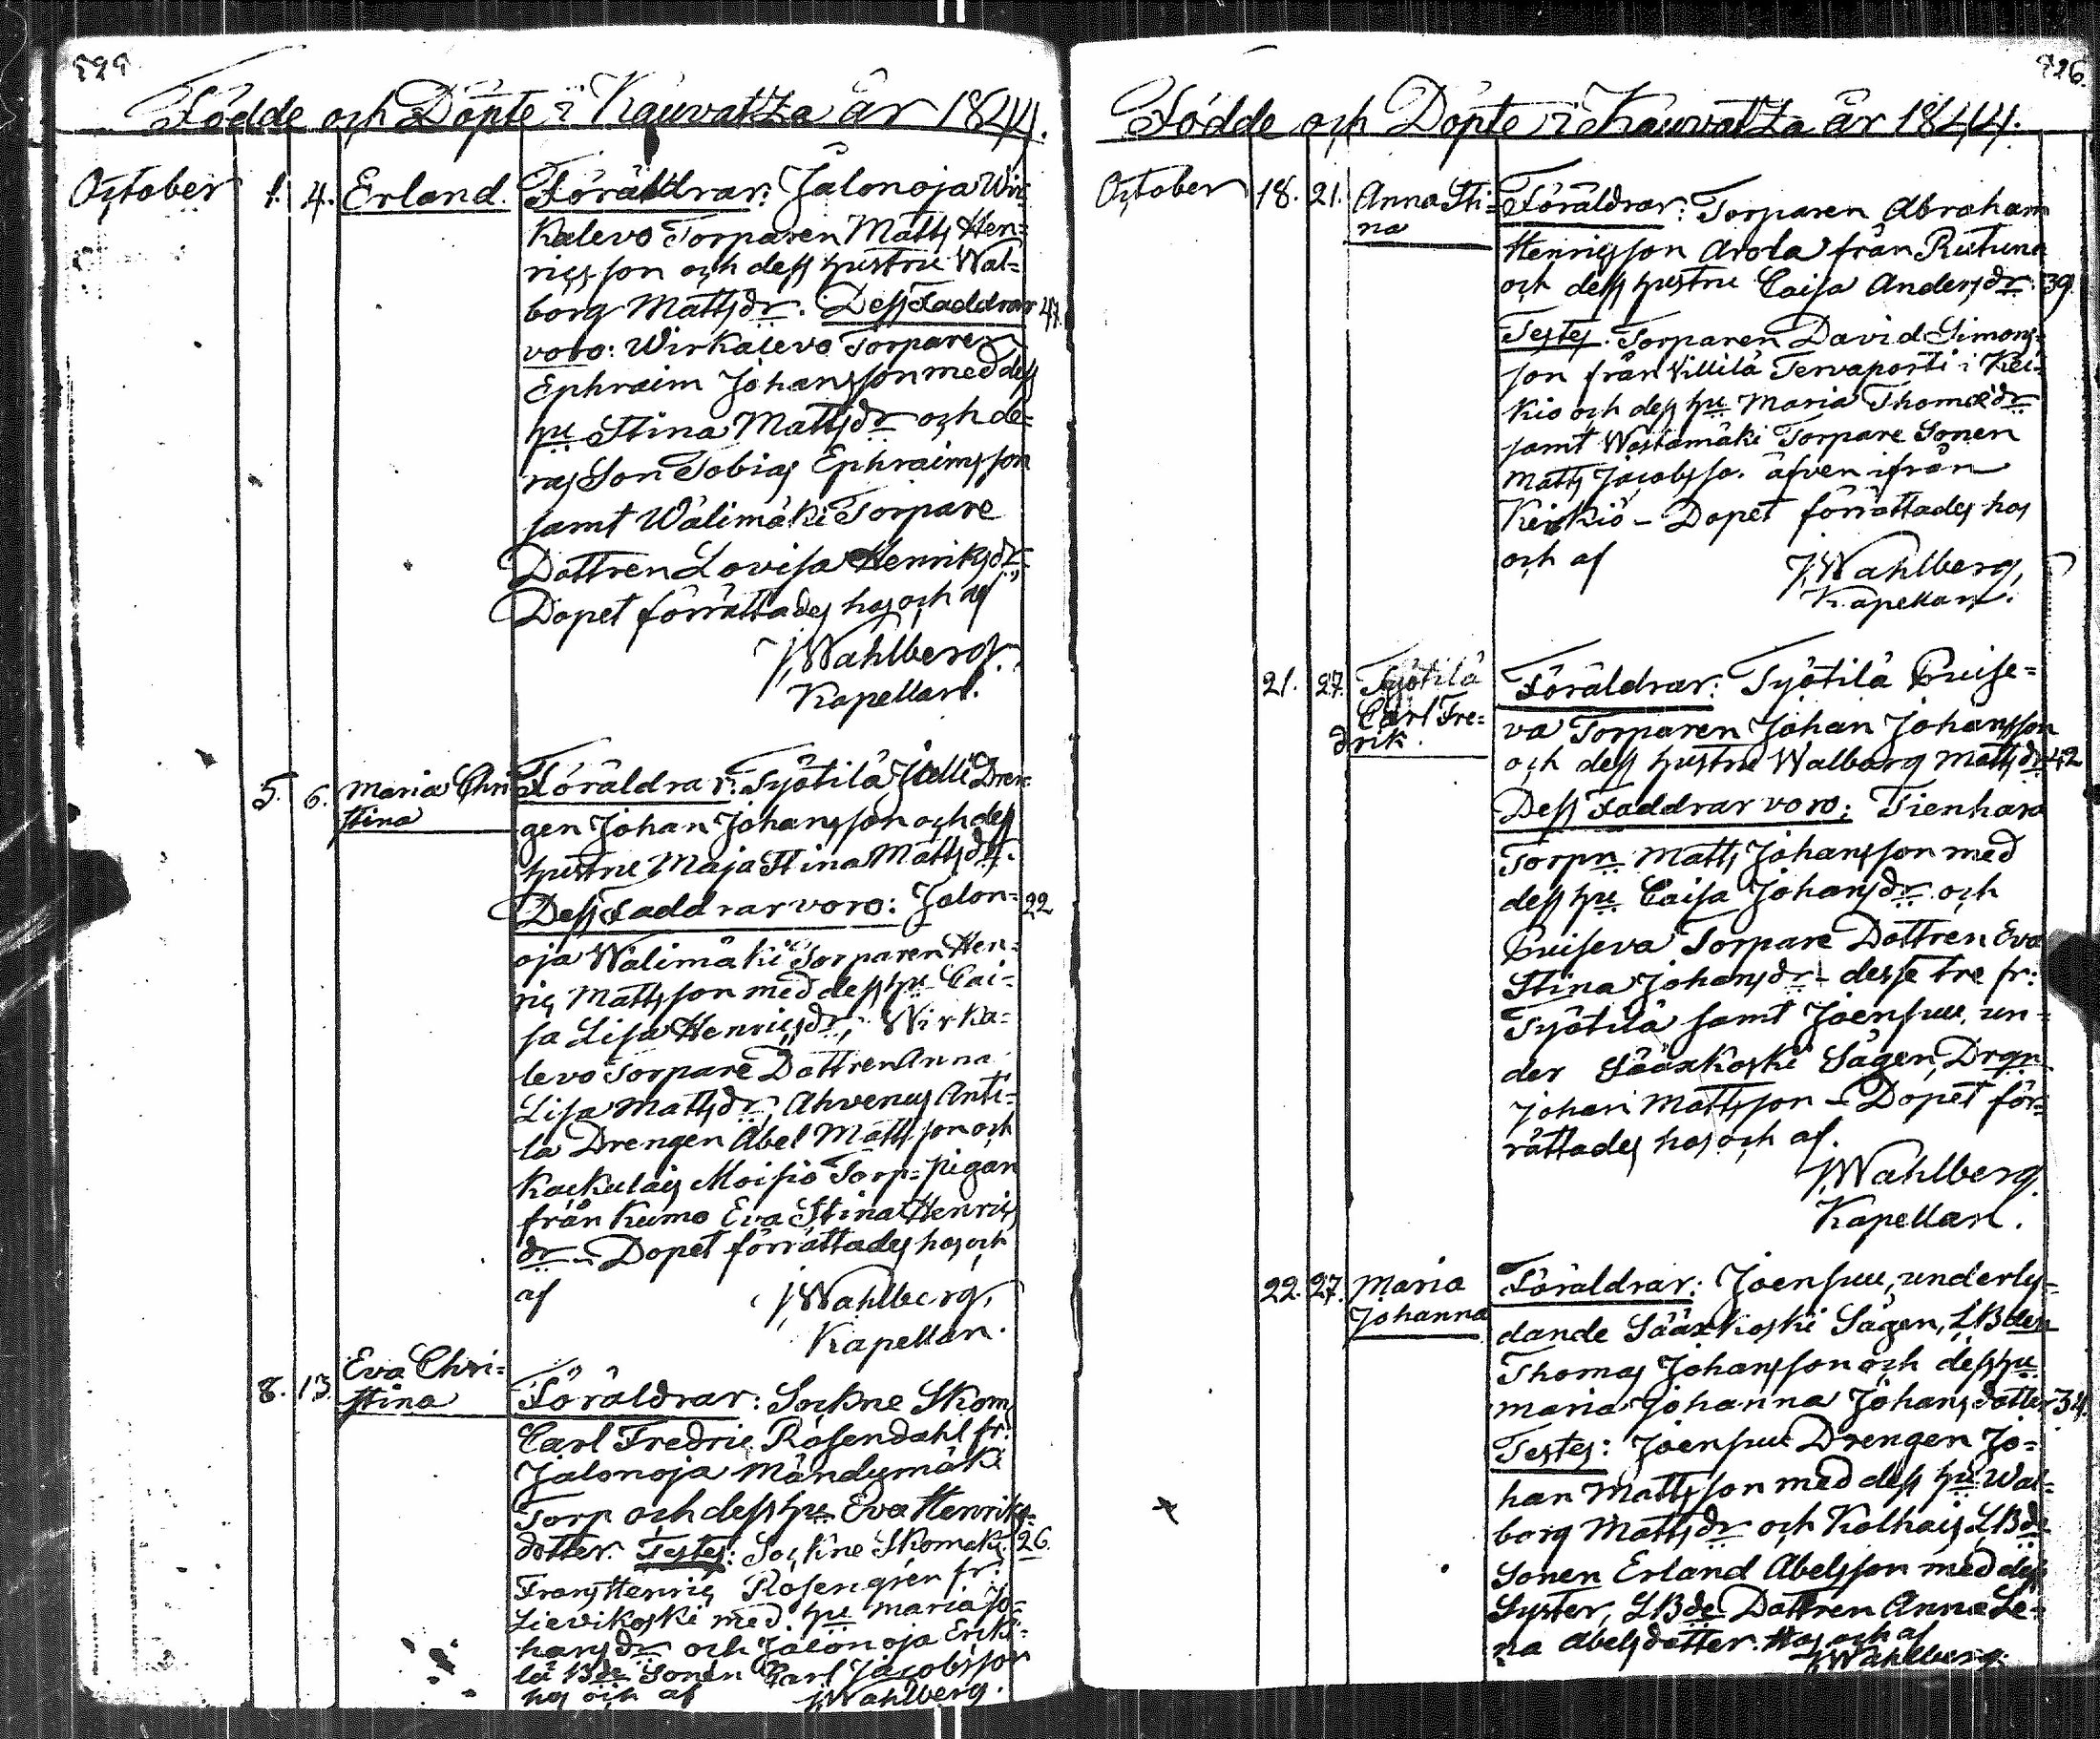 Födde och Döpte i Kauvatza år 1844.
October 1. 4. Erland. Föräldrar: Jalonoja Wir=
kalevo Torparen Matts Hen=
ricsson och dess hustru Wal=
borg Mattsdr. Dess Faddrar 47.
voro: Wirkalevo Torparen
Ephraim Johansson med dess
hu Stina Mattsdr och de=
ras Son Tobias Ephraimsson
samt Wälimäki Torpare
Dottren Lovisa Henriksdr
Dopet förrättades hos och af
J Wahlberg.
Kapellan.
5. 6. Maria Chri Föräldrar: Työtilä Jilli Dren=
stina gen Johan Johansson och dess
hustru Maja Stina Mattsdr.
Dess Faddrar voro: Jalon= 22
oja Wälimäki Torparen Hen=
ric Mattsson med dess hu Cai=
sa Lisa Henricsdr, Wirka=
levo Torpare Dottren Anna
Lisa Mattsdr, Ahvenus Anti=
la Drengen Abel Mattsson och
Kackulais Moisio Torp=pigan
från Kumo Eva Stina Henrics
dr – Dopet förrättades hos och
af J Wahlberg,
Kapellan.
Eva Chri=
8. 13. stina Föräldrar: Sockne Skom
Carl Fredric Rosendahl fr:
Jalonoja Mändymäki
Torp och dess hu Eva Henriks=
dotter. Testes: Sockne Skomak. 26.
Frans Henric Rosengren fr:
Lievikoski med hu Maria Jo=
hansdr och Jalonoja Erki=
lä Bde Sonen Carl Jacobsson
hos och af J Wahlberg.
926.
Födde och Döpte i Kauvatza år 1844.
October 18. 21. Anna Sti= Föräldrar: Torparen Abraham
na Henricsson Arola från Rutuna
och dess hustru Caisa Andersdr. 39.
Testes. Torparen David Simons=
son från Villilä Tervaporti i Kei=
kiö och dess hu Maria Thomædr
samt Westamäki Torpare Sonen
Matts Jacobsso. äfven ifrån
Keikiö – Dopet förrättades hos
och af J Wahlberg,
Kapellan.
21. 27. Työtilä Föräldrar: Työtilä Puise=
Carl Fre= va Torparen Johan Johansson
drik. och dess hustru Walborg Mattsdr 42
Dess Faddrar voro: Tienhara
Torpn Matts Johansson med
dess hu Caisa Johansdr och
Puiseva Torpare Dottren Eva
Stina Johansdr – desse tre fr:
Työtilä samt Joensuu, un=
der Sääxkoski Sågen, Drgn
Johan Mattsson – Dopet för=
rättades hos och af.
J Wahlberg.
Kapellan.
22. 27. Maria Föräldrar: Joensuu, underly=
Johanna dande Sääxkoski Sågen, LBden
Thomas Johansson och dess hu
Maria Johanna Johansdotter 34.
Testes: Joensuu Drengen Jo=
han Mattsson med dess hu Wal=
borg Mattsdr och Kolhais LBde
Sonen Erland Abelsson med dess
Syster, LBde Dottren Anna Le=
na Abelsdotter. Hos och af
J Wahlberg.